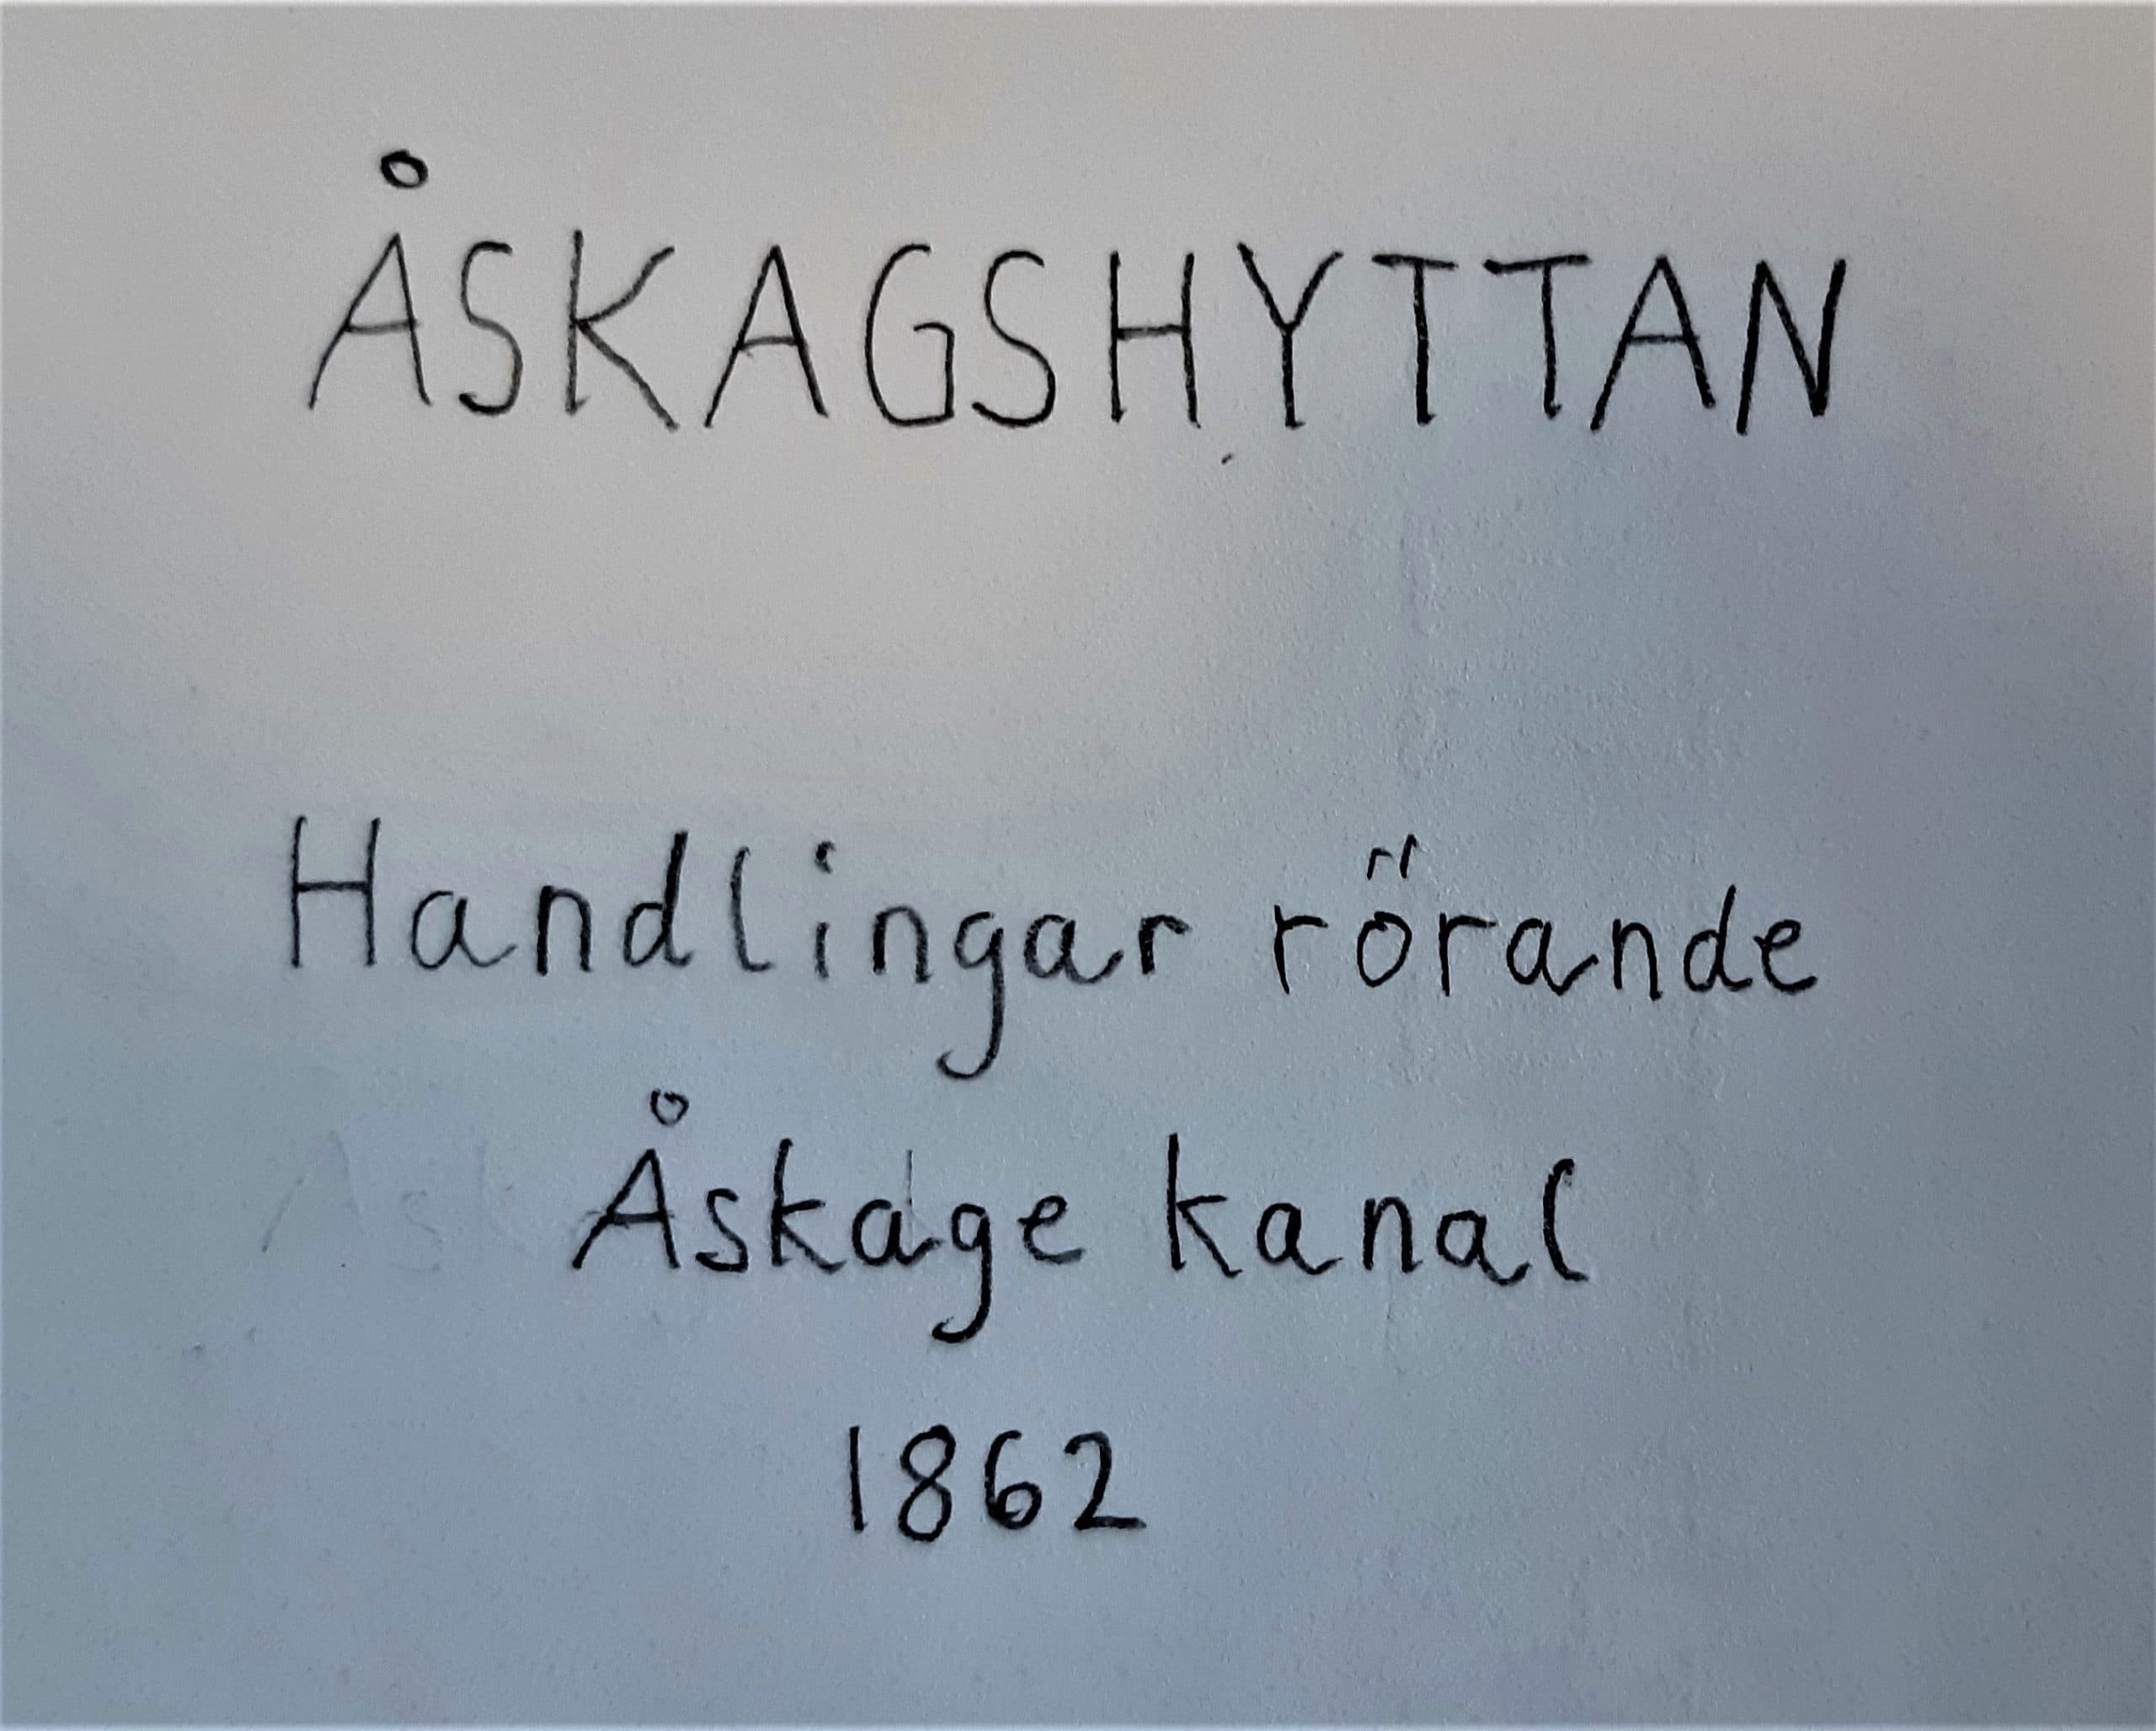 ÅSKAGSHYTTAN
Handlingar rörande
Åskage kanal
1862